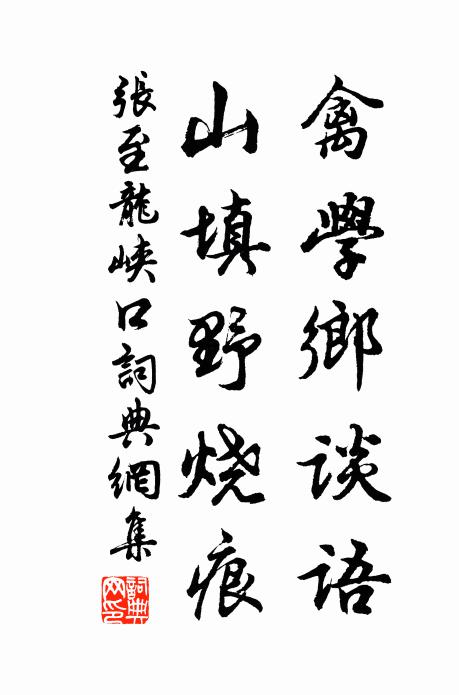 禽學鄉談語
山填野燒痕
張至龍峽口詞典網集
詞典
网印